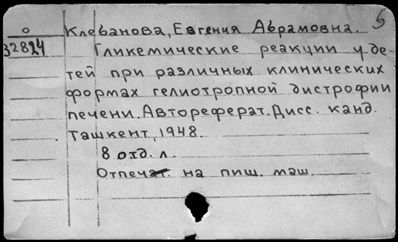 Клебанова, Евгения Абрамовна. 5
0
32824
Гликемические реакции у де-
тей при различных клинических
формах гелиотропной дистрофии
печени. Автореферат. Дисс. канд.
Ташкент, 1948.
8 отд. л.
Отпечат. на пиш. маш.